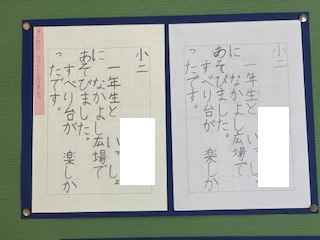 小二
一年生と いっしょ
に なかよし広場で
あそびました。
すべり台が 楽しか
ったです。
小二
一年生と いっしょ
に なかよし広場で
あそびました。
すべり台が 楽しか
ったです。